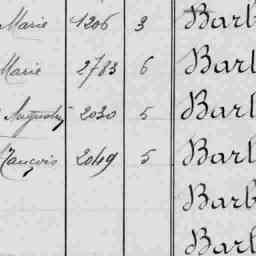 Marie 1206 3 Barb
Marie 2783 6 Barb
Augustin 2030 5 Barl
François 2049 5 Barl
Barb
Barl